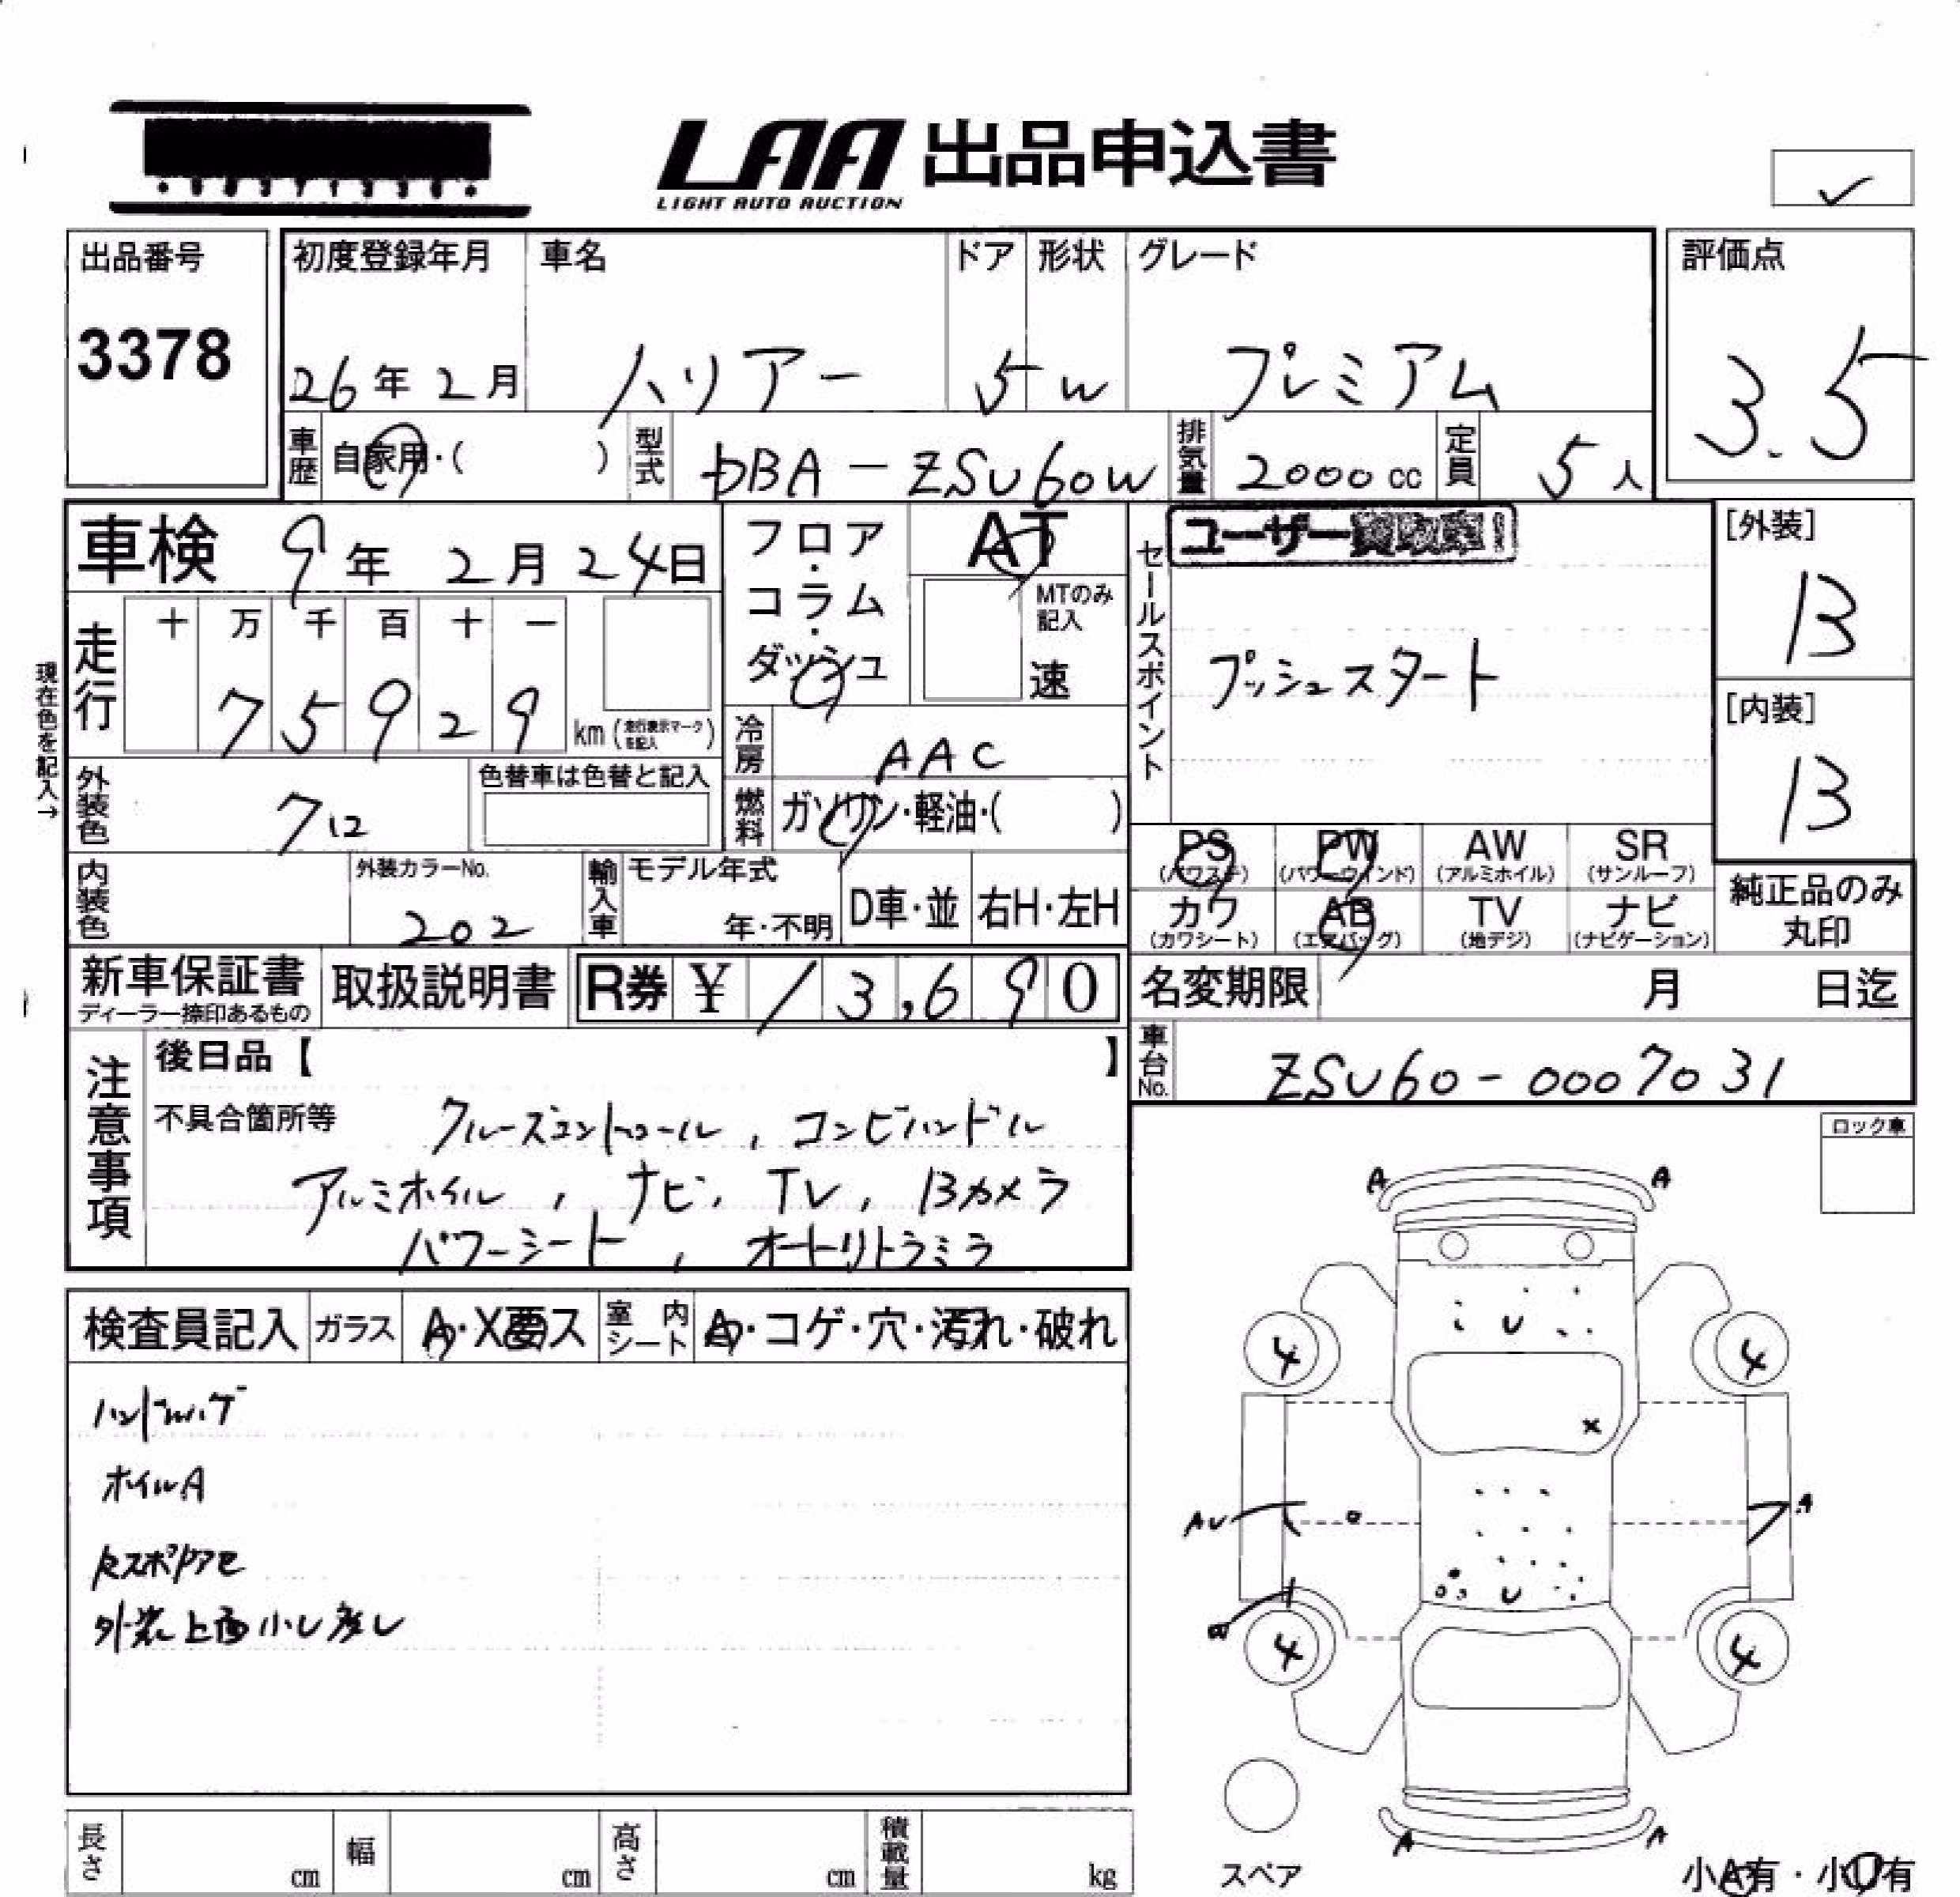 LAA 出品申込書
LIGHT AUTO AUCTION
出品番号
3378
初度登録年月
26年2月
車名
ハリアー
ドア
5
形状
W
グレード
プレミアム
評価点
3.5
車歴
自家用・( )
型式
DBA-ZSU60W
排気量
2000cc
定員
5人
車検 9年2月24日
フロア・コラム・ダッシュ
AT
MTのみ記入
速
セールスポイント
ユーザー買取車!
プッシュスタート
[外装]
B
[内装]
B
現在色を記入→
走行
十 万 千 百 十 一
7 5 9 2 9
km(走行表示マークを記入)
冷房
AAC
外装色
712
色替車は色替と記入
燃料
ガソリン・軽油・( )
内装色
外装カラーNo.
202
輸入車
モデル年式
年・不明
D車・並
右H・左H
PS
(パワステ)
PW
(パワーウインド)
AW
(アルミホイル)
SR
(サンルーフ)
カワ
(カワシート)
AB
(エアバッグ)
TV
(地デジ)
ナビ
(ナビゲーション)
純正品のみ
丸印
新車保証書
ディーラー捺印あるもの
取扱説明書
R券 ¥13,690
名変期限 月 日迄
車台No.
ZSU60-0007031
注意事項
後日品【 】
不具合箇所等
クルーズコントロール, コンビハンドル
アルミホイル, ナビ, TV, Bカメラ
パワーシート, オートリトラミラ
ロック車
検査員記入
ガラス
A・X要ス
室内シート
A・コゲ・穴・汚れ・破れ
ホイルA
外装上面小U多し
A A
4 4
U
X
AU A
U
4 4
A A
スペア
小A有・小U有
長さ cm
幅 cm
高さ cm
積載量 kg